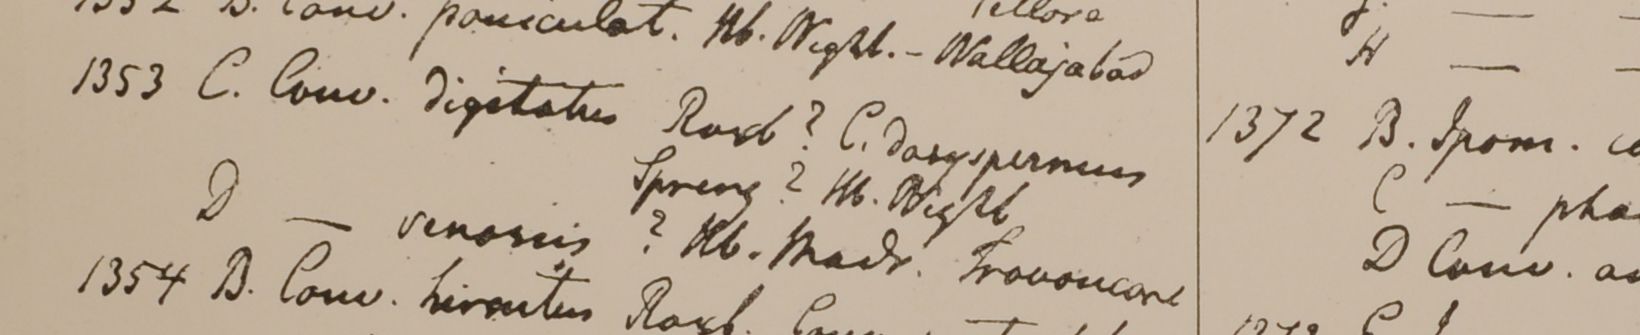 1352 B. Conv. paniculat. Hb. Wight. – Wallajabad
1353 C. Conv. digitatus Roxb? C. dasyspermus
Spreng? Hb. Wight
D — venosus ? Hb. Madr. Travancore
1354 B. Conv. hirsutus Roxb.
H —
1372 B. Ipom.
C — pha
D Conv.